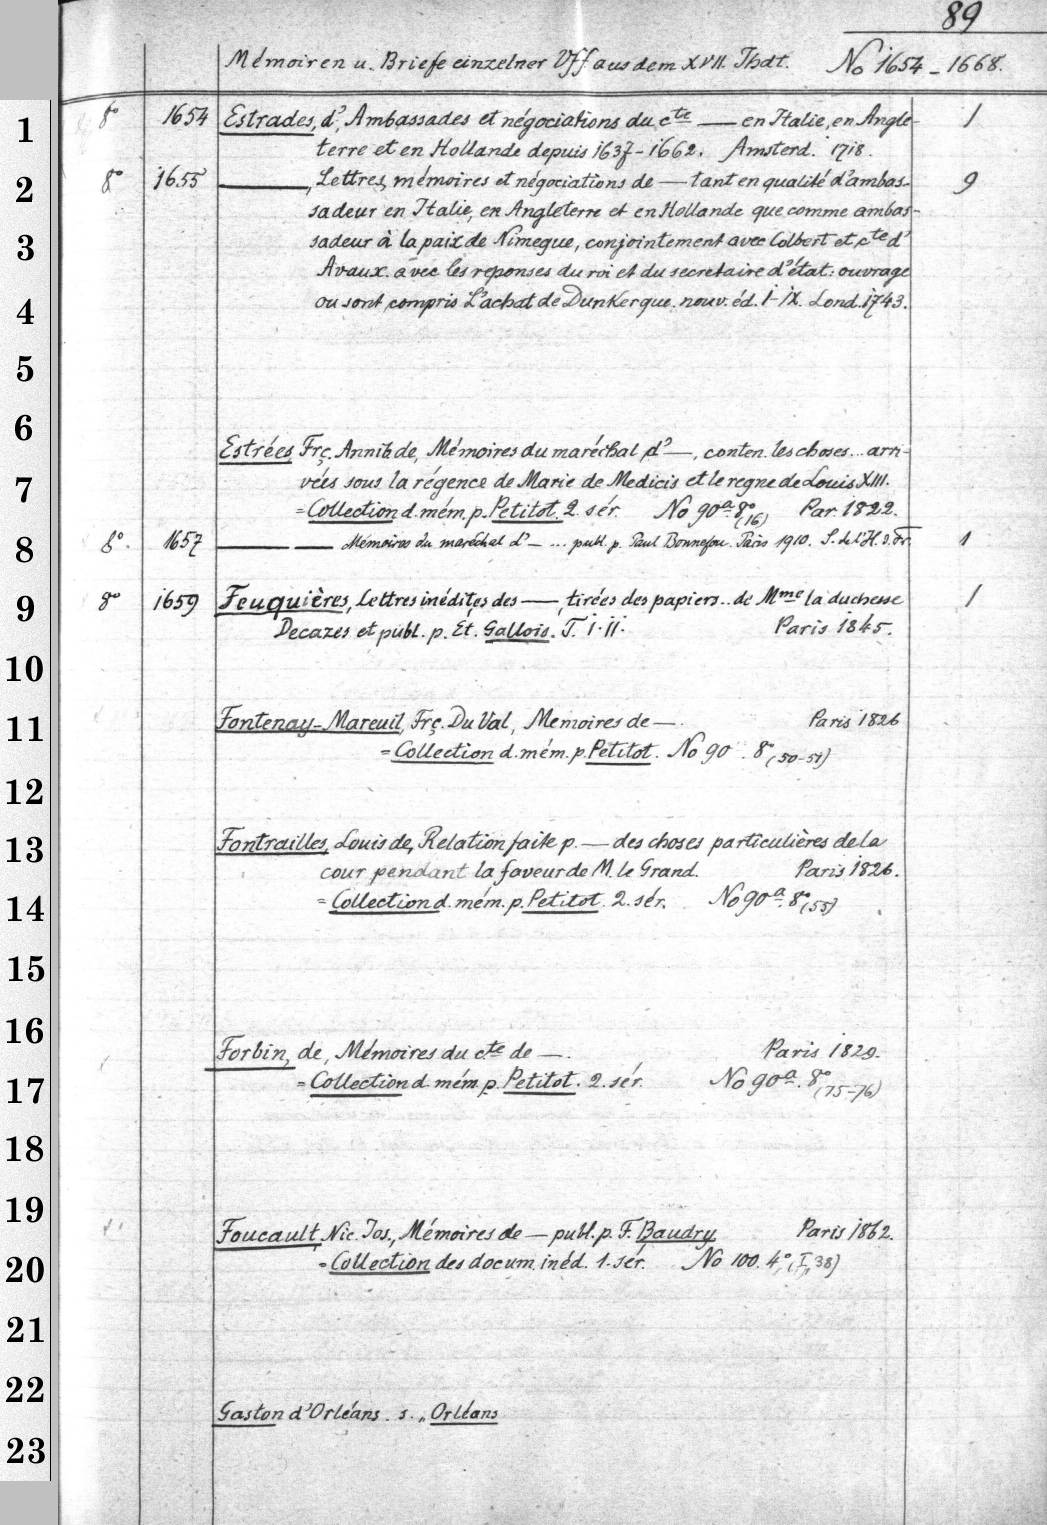 89
Mémoiren u. Briefe einzelner Vff aus dem XVII. Jhdt. No 1654-1668.
1 8° 1654 Estrades, d', Ambassades et négociations du cte — en Italie, en Angle- 1
terre et en Hollande depuis 1637-1662. Amsterd. 1718.
2 8° 1655 —, Lettres, mémoires et négociations de — tant en qualité d'ambas- 9
sadeur en Italie, en Angleterre et en Hollande que comme ambas-
3 sadeur à la paix de Nimegue, conjointement avec Colbert et cte d'
Avaux. avec les reponses du roi et du secretaire d'état: ouvrage
4 ou sont compris L'achat de Dunkerque. nouv. éd. I-IX. Lond. 1743.
5
6
Estrées, Frç. Annib. de, Mémoires du maréchal d' —, conten. les choses... arri-
7 vées sous la régence de Marie de Medicis et le regne de Louis XIII.
= Collection d. mém. p. Petitot. 2. sér. No 90a 8° (16) Par. 1822.
8 8°. 1657 — — Mémoires du maréchal d' — ... publ. p. Paul Bonnefon. Paris 1910. S. de l'H. d. Fr. 1
9 8° 1659 Feuquières, Lettres inédites des —, tirées des papiers.. de Mme la duchesse 1
Decazes et publ. p. Et. Gallois. T. I-II. Paris 1845.
10
11 Fontenay-Mareuil, Frç. Du Val, Memoires de —. Paris 1826
= Collection d. mém. p. Petitot. No 90 . 8° (50-51)
12
13 Fontrailles, Louis de, Relation faite p. — des choses particulières de la
cour pendant la faveur de M. le Grand. Paris 1826.
14 = Collection d. mém. p. Petitot. 2. sér. No 90a. 8° (55)
15
16
Forbin, de, Mémoires du cte de —. Paris 1829.
17 = Collection d. mém. p. Petitot. 2. sér. No 90a. 8° (75-76)
18
19
Foucault, Nic. Jos., Mémoires de — publ. p. F. Baudry Paris 1862.
20 = Collection des docum. inéd. 1. sér. No 100. 4°, (I, 38)
21
22
Gaston d'Orléans. s. „ Orléans
23